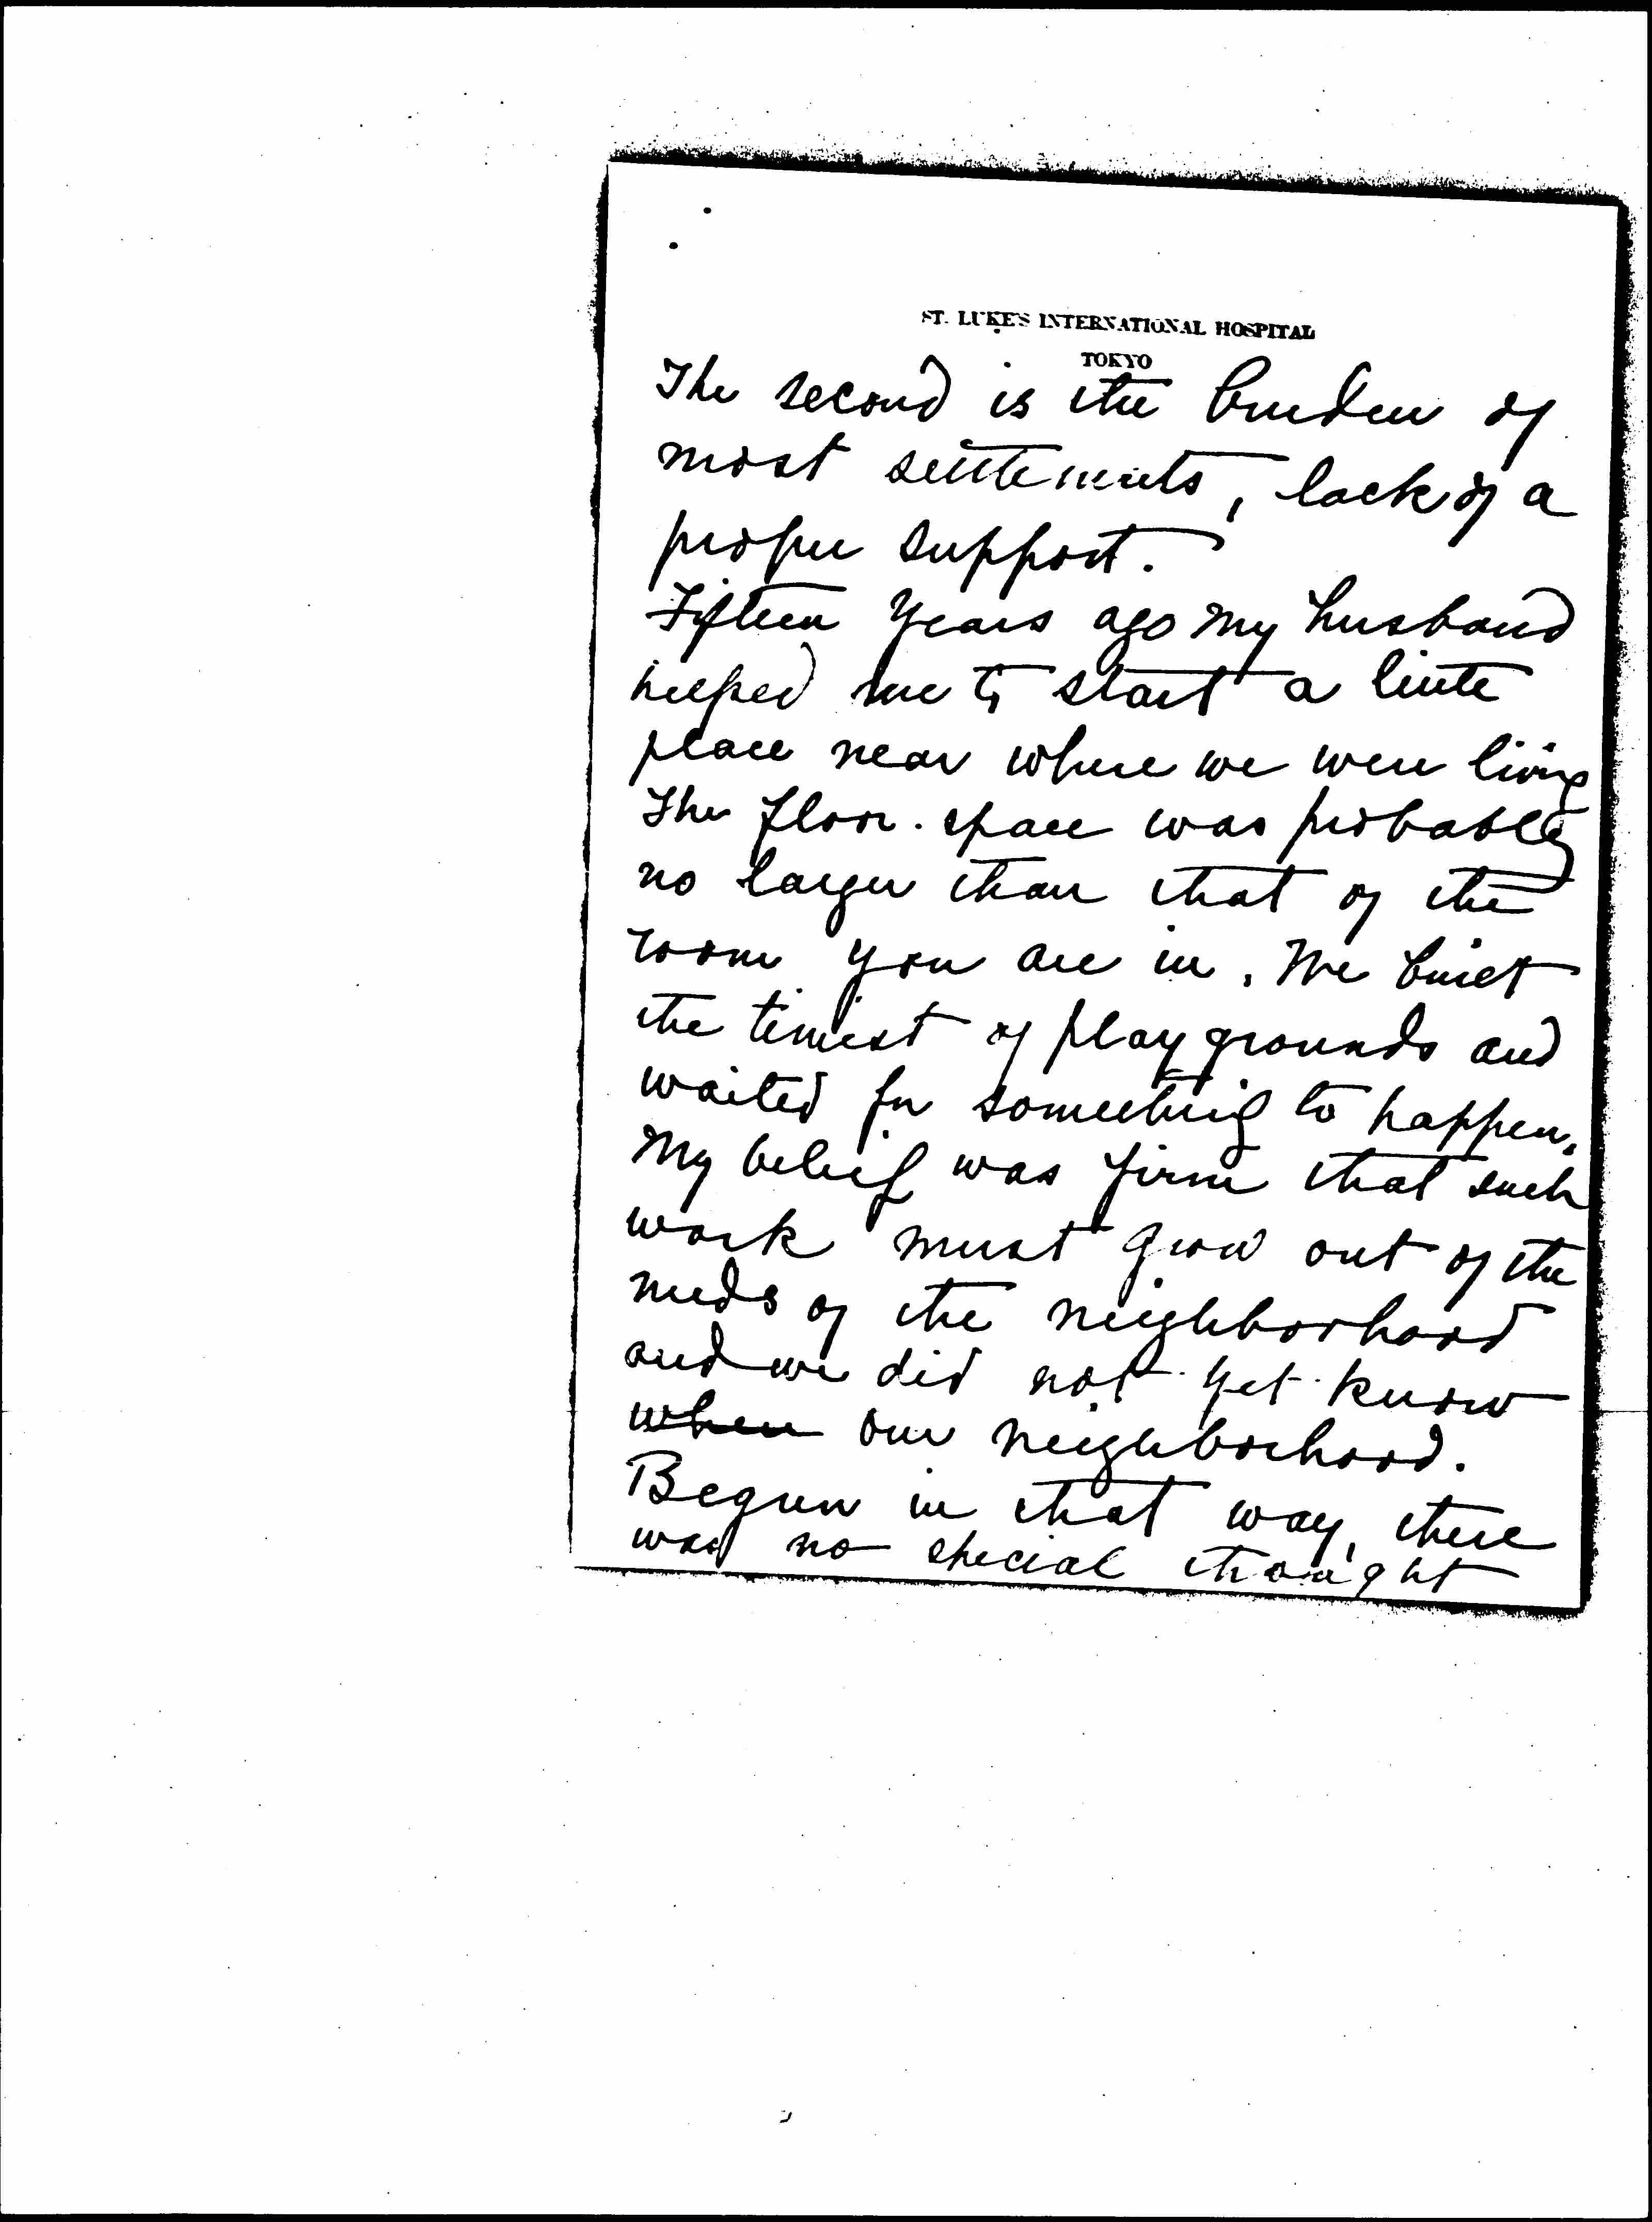 ST. LUKE'S INTERNATIONAL HOSPITAL
TOKYO
The second is the burden of
most settlements, lack of a
proper support.
Fifteen years ago my husband
helped me to start a little
place near where we were living
The floor. space was probably
no larger than that of the
room you are in. We built
the tiniest of playgrounds and
waited for something to happen.
My belief was firm that such
work must grow out of the
needs of the neighborhood
and we did not yet know
when our neighborhood.
Begun in that way, there
was no special thought